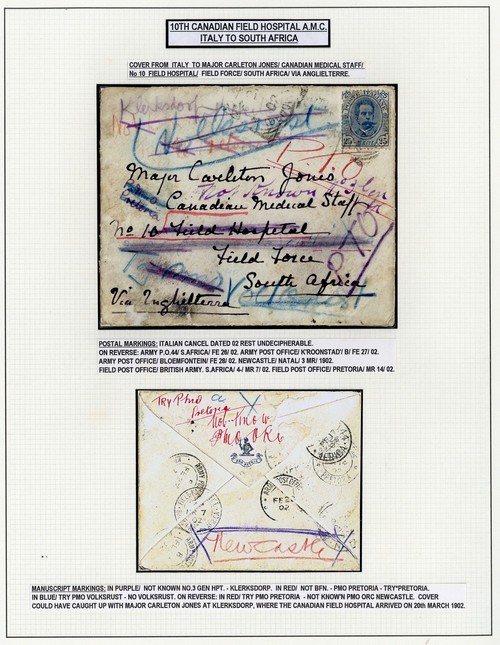 10TH CANADIAN FIELD HOSPITAL A.M.C.
ITALY TO SOUTH AFRICA
COVER FROM ITALY TO MAJOR CARLETON JONES/ CANADIAN MEDICAL STAFF/
No 10 FIELD HOSPITAL/ FIELD FORCE/ SOUTH AFRICA/ VIA ANGLIELTERRE.
Klerksdorp
POSTE ITALIANE
25 25
No
Volksrust
P.T.O
Major Carleton Jones
Not Known
Pretoria
Canadian Medical Staff
No 10 Field Hospital
Field Force
South Africa
Via Inghilterra
Volksrust
POSTAL MARKINGS; ITALIAN CANCEL DATED 02 REST UNDECIPHERABLE.
ON REVERSE: ARMY P.O.44/ S.AFRICA/ FE 26/ 02. ARMY POST OFFICE/ K'ROONSTAD'/ B/ FE 27/ 02.
ARMY POST OFFICE/ BLOEMFONTEIN/ FE 28/ 02. NEWCASTLE/ NATAL/ 3 MR/ 1902.
FIELD POST OFFICE/ BRITISH ARMY. S.AFRICA/ 4-/ MR 7/ 02. FIELD POST OFFICE/ PRETORIA/ MR 14/ 02.
Try PMO
Pretoria
Not Know
PMO ORC
ARMY POST OFFICE
FE 28
02
MR 7
02
Newcastle
MANUSCRIPT MARKINGS; IN PURPLE/ NOT KNOWN NO.3 GEN HPT. - KLERKSDORP. IN RED/ NOT BFN. - PMO PRETORIA - TRY*PRETORIA.
IN BLUE/ TRY PMO VOLKSRUST - NO VOLKSRUST. ON REVERSE: IN RED/ TRY PMO PRETORIA - NOT KNOW'N PMO ORC NEWCASTLE. COVER
COULD HAVE CAUGHT UP WITH MAJOR CARLETON JONES AT KLERKSDORP, WHERE THE CANADIAN FIELD HOSPITAL ARRIVED ON 20th MARCH 1902.